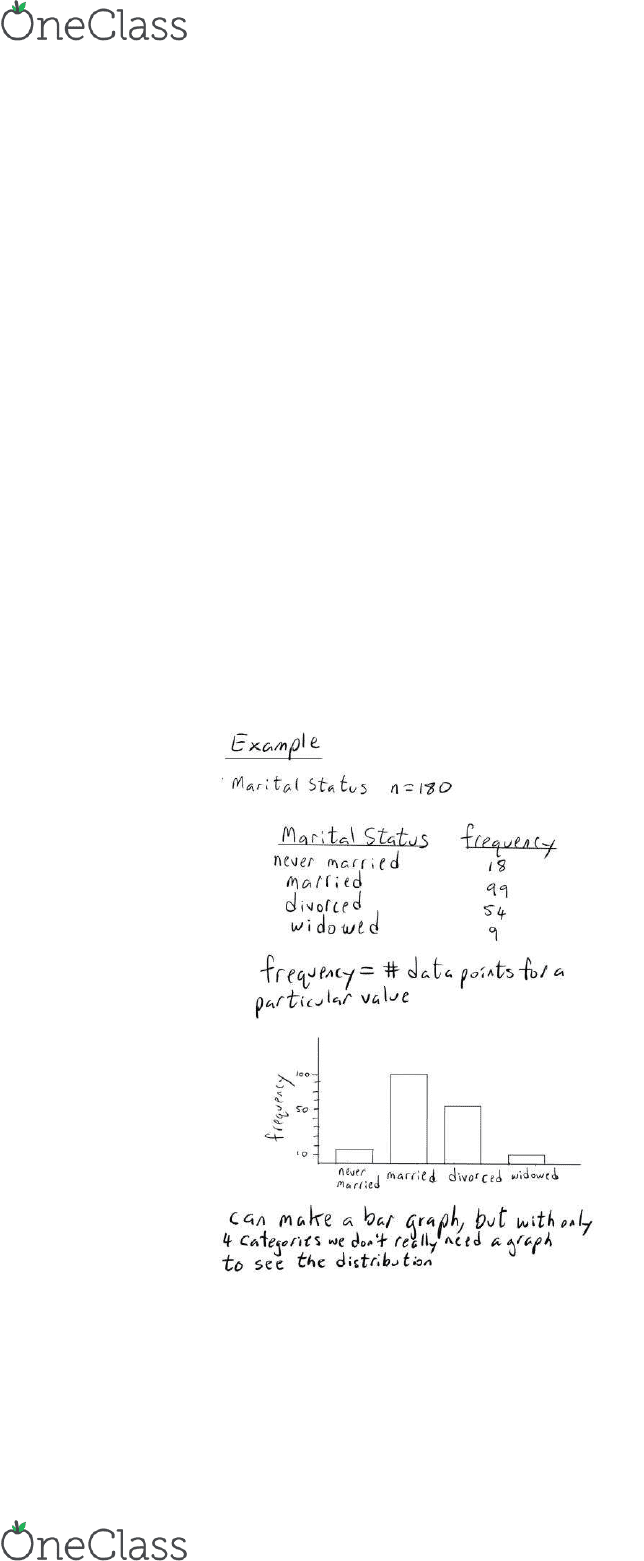 OneClass
Example
Marital Status n=180
Marital Status frequency
never married 18
married 99
divorced 54
widowed 9
frequency = # data points for a
particular value
frequency
100
50
10
never married divorced widowed
married
can make a bar graph, but with only
4 categories we don't really need a graph
to see the distribution
OneClass